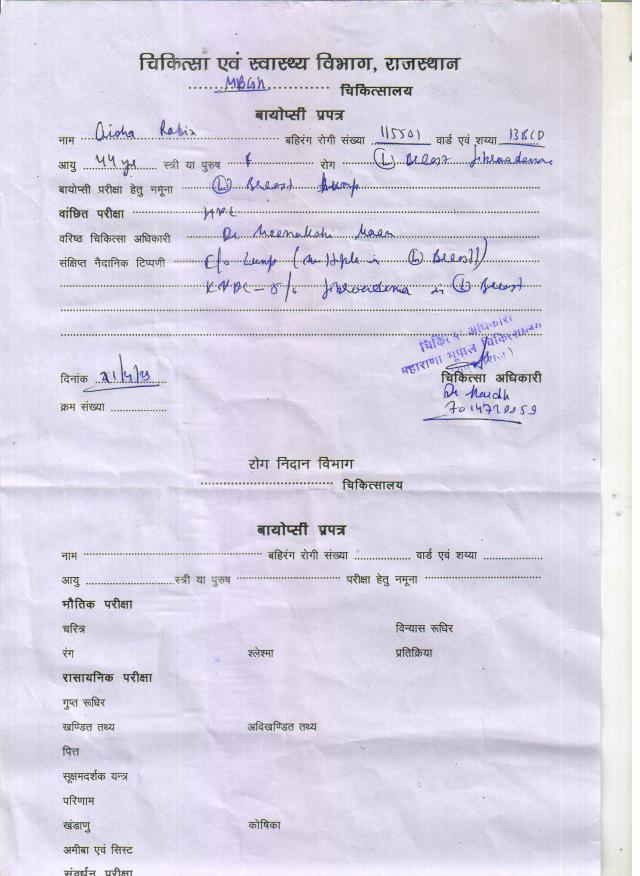 चिकित्सा एवं स्वास्थ्य विभाग, राजस्थान
MBGH चिकित्सालय
बायोप्सी प्रपत्र
नाम Aisha बहिरंग रोगी संख्या 115501 वार्ड एवं शय्या
आयु 44 yr स्त्री या पुरुष F रोग (L) Breast fibroadenoma
बायोप्सी परीक्षा हेतु नमूना (L) Breast Lump
वांछित परीक्षा HPE
वरिष्ठ चिकित्सा अधिकारी Dr Meenakshi
संक्षिप्त नैदानिक टिप्पणी C/o Lump (multiple in (L) Breast)
fibroadenoma in (L) Breast
चिकित्सा अधिकारी
महाराणा भूपाल चिकित्सालय
दिनांक 21/4/23
चिकित्सा अधिकारी
क्रम संख्या
Dr
रोग निदान विभाग
चिकित्सालय
बायोप्सी प्रपत्र
नाम बहिरंग रोगी संख्या वार्ड एवं शय्या
आयु स्त्री या पुरुष परीक्षा हेतु नमूना
भौतिक परीक्षा
चरित्र विन्यास रूधिर
रंग श्लेश्मा प्रतिक्रिया
रासायनिक परीक्षा
गुप्त रूधिर
खण्डित तथ्य अविखण्डित तथ्य
पित्त
सूक्षमदर्शक यन्त्र
परिणाम
खंडाणु कोषिका
अमीबा एवं सिस्ट
संवर्धन परीक्षा